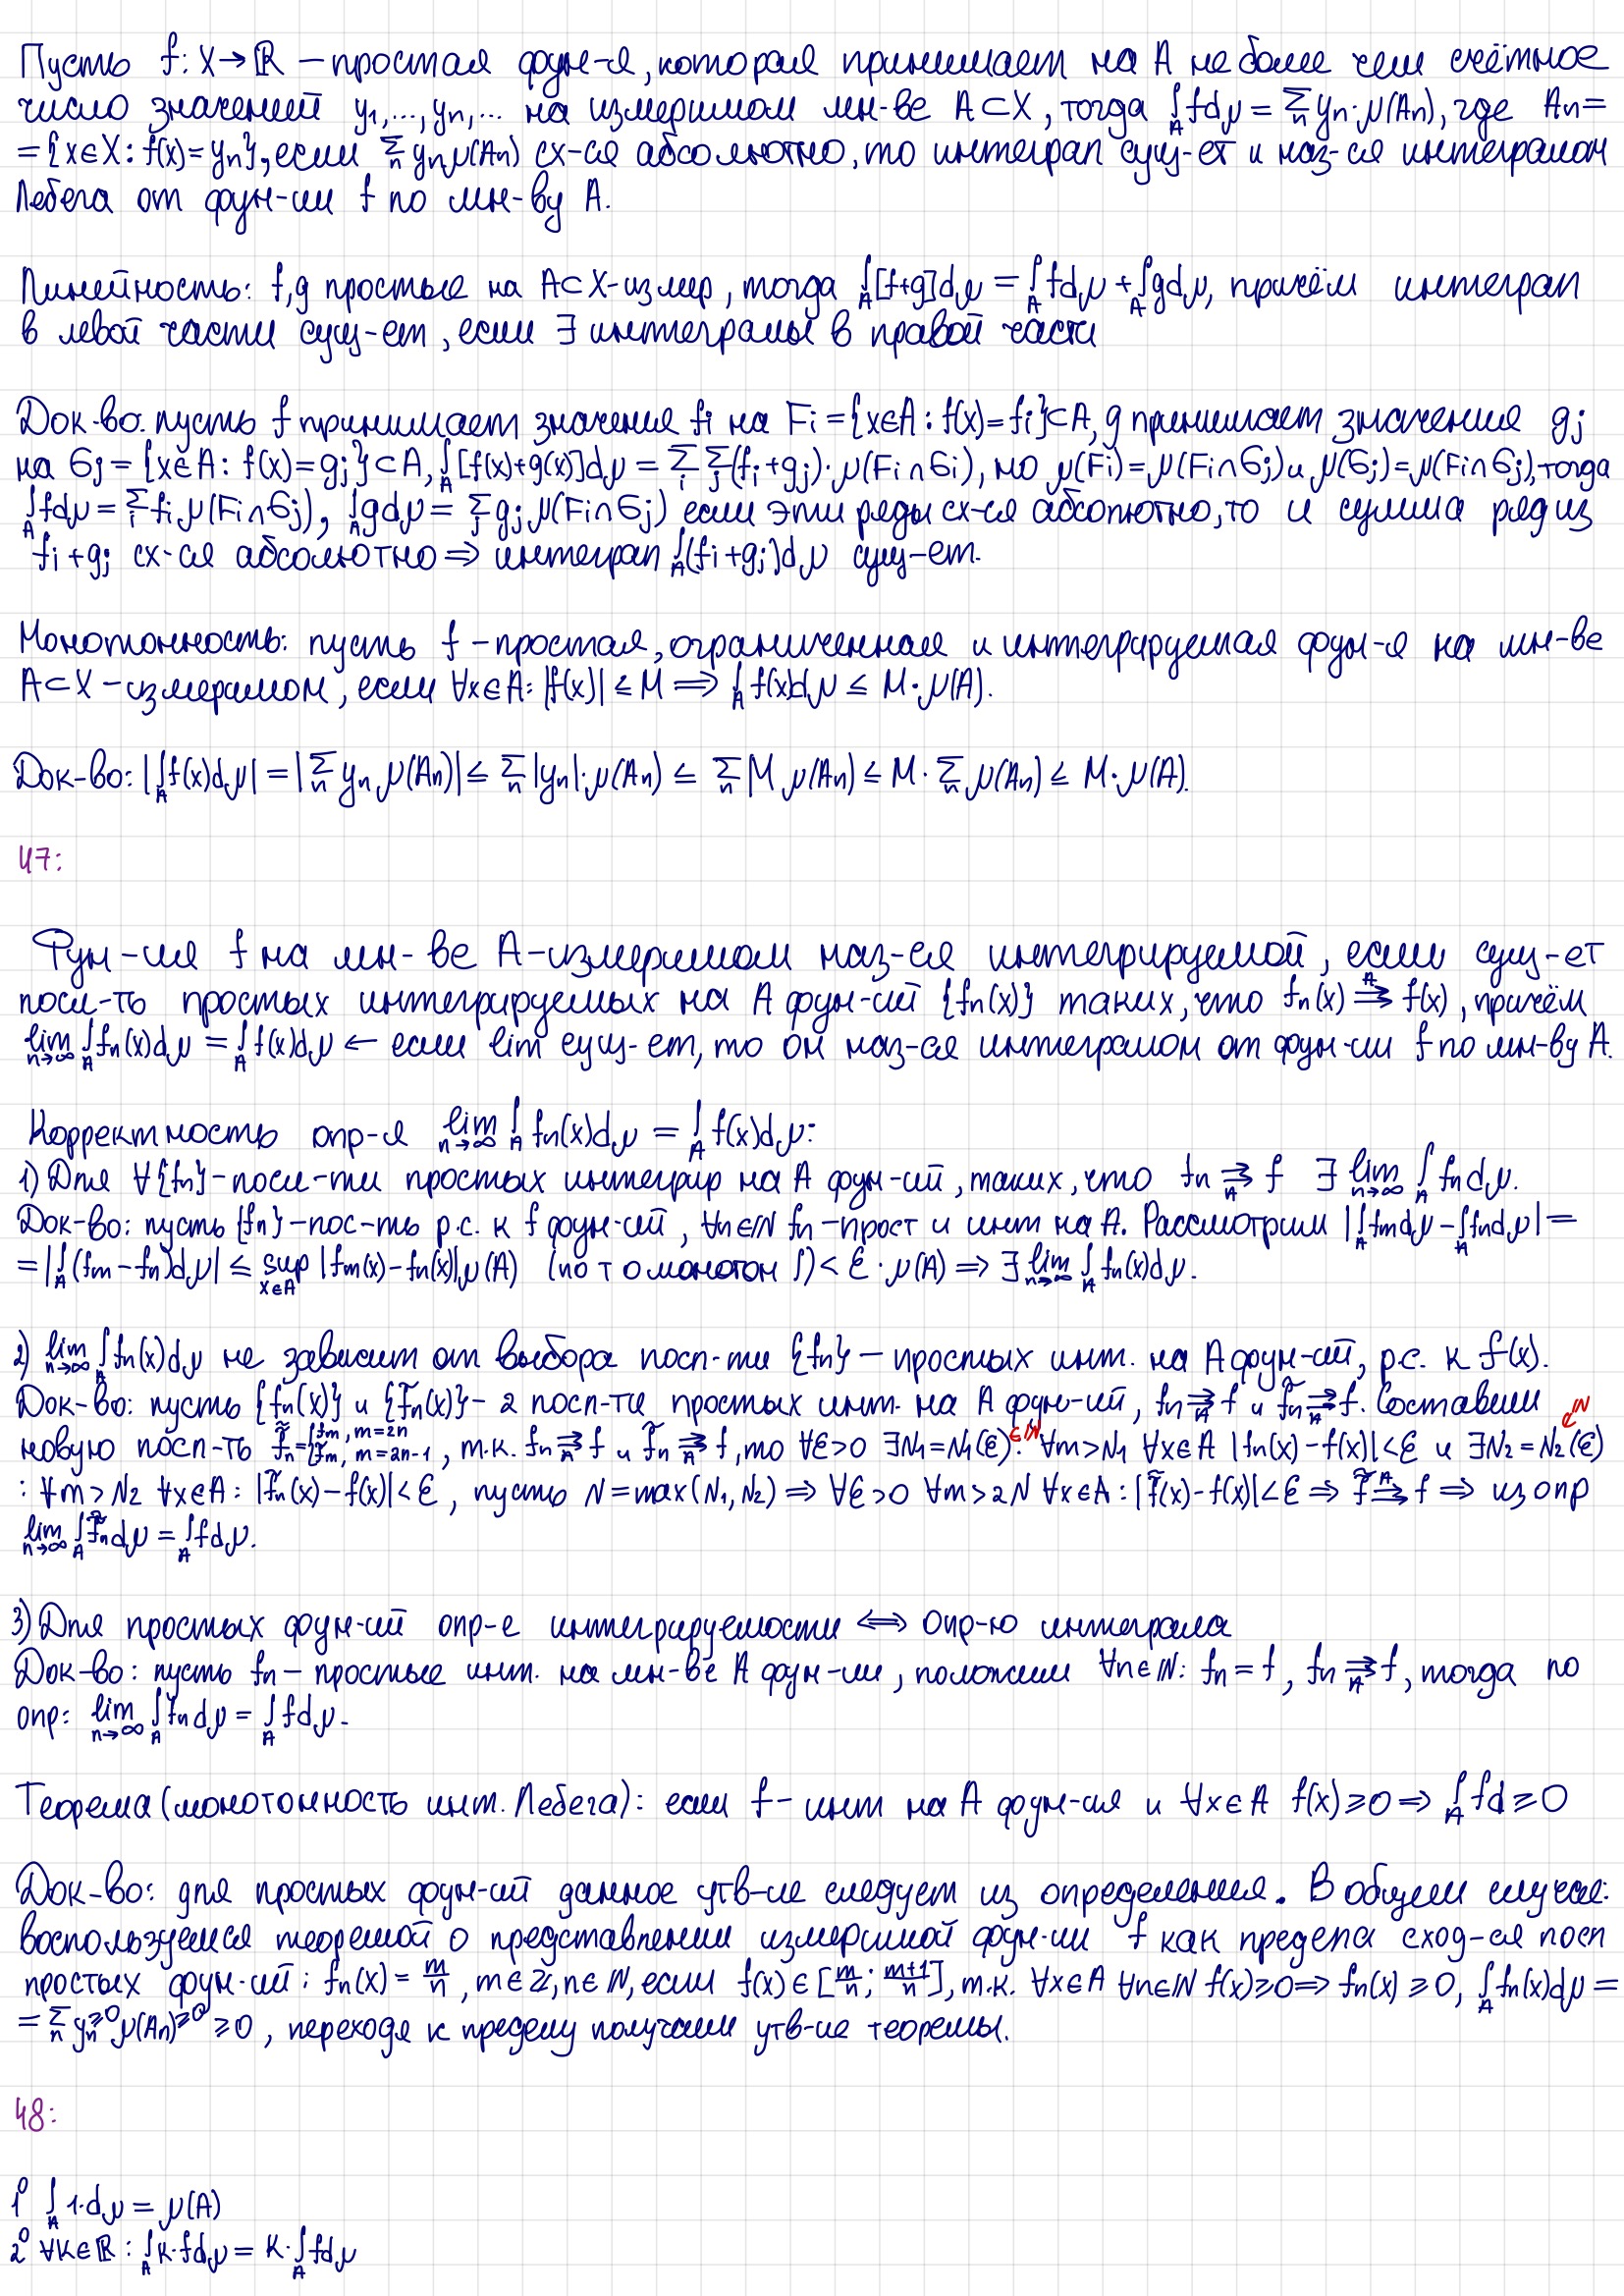 Пусть f: X→ℝ – простая фун-я, которая принимает на A не более чем счётное
число значений y₁,...,yₙ,... на измеримом мн-ве A⊂X, тогда ∫_A fdμ = Σ_n yₙ·μ(Aₙ), где Aₙ=
={x∈X: f(x)=yₙ}, если Σ_n yₙμ(Aₙ) сх-ся абсолютно, то интеграл сущ-ет и наз-ся интегралом
Лебега от фун-ии f по мн-ву A.
Линейность: f,g простые на A⊂X-измер, тогда ∫_A [f+g]dμ = ∫_A fdμ + ∫_A gdμ, причём интеграл
в левой части сущ-ет, если ∃ интегралы в правой части
Док-во: пусть f принимает значения fᵢ на Fᵢ={x∈A: f(x)=fᵢ}⊂A, g принимает значения gⱼ
на Gⱼ={x∈A: f(x)=gⱼ}⊂A, ∫_A [f(x)+g(x)]dμ = Σ_i Σ_j (fᵢ+gⱼ)·μ(Fᵢ∩Gᵢ), но μ(Fᵢ)=μ(Fᵢ∩Gⱼ) и μ(Gⱼ)=μ(Fᵢ∩Gⱼ), тогда
∫_A fdμ = Σ_i fᵢ μ(Fᵢ∩Gⱼ), ∫_A gdμ = Σ_j gⱼ μ(Fᵢ∩Gⱼ) если эти ряды сх-ся абсолютно, то и сумма ряд из
fᵢ+gⱼ сх-ся абсолютно ⇒ интеграл ∫_A (fᵢ+gⱼ)dμ сущ-ет.
Монотонность: пусть f – простая, ограниченная и интегрируемая фун-я на мн-ве
A⊂X – измеримом, если ∀x∈A: |f(x)| ≤ M ⟹ ∫_A f(x)dμ ≤ M·μ(A).
Док-во: |∫_A f(x)dμ| = |Σ_n yₙ μ(Aₙ)| ≤ Σ_n |yₙ|·μ(Aₙ) ≤ Σ_n |M μ(Aₙ) ≤ M·Σ_n μ(Aₙ) ≤ M·μ(A).
47:
Фун-ия f на мн-ве A-измеримом наз-ся интегрируемой, если сущ-ет
посл-ть простых интегрируемых на A фун-ий {fₙ(x)} таких, что fₙ(x) ⇉^A f(x), причём
lim_{n→∞} ∫_A fₙ(x)dμ = ∫_A f(x)dμ ← если lim сущ-ет, то он наз-ся интегралом от фун-ии f по мн-ву A.
Корректность опр-я lim_{n→∞} ∫_A fₙ(x)dμ = ∫_A f(x)dμ:
1) Для ∀{fₙ}-посл-ти простых интегрир на A фун-ий, таких, что fₙ ⇉_A f ∃ lim_{n→∞} ∫_A fₙdμ.
Док-во: пусть {fₙ}-пос-ть р.с. к f фун-ий, ∀n∈ℕ fₙ-прост и инт на A. Рассмотрим |∫_A fₘdμ - ∫_A fₙdμ| =
= |∫_A (fₘ-fₙ)dμ| ≤ sup_{x∈A} |fₘ(x)-fₙ(x)|μ(A) (по т о монотон ∫) < ε·μ(A) ⇒ ∃ lim_{n→∞} ∫_A fₙ(x)dμ.
2) lim_{n→∞} ∫_A fₙ(x)dμ не зависит от выбора посл-ти {fₙ} – простых инт. на A фун-ий, р.с. к f(x).
Док-во: пусть {fₙ(x)} и {f̃ₙ(x)}- 2 посл-ти простых инт. на A фун-ий, fₙ ⇉_A f и f̃ₙ ⇉_A f. Составим
новую посл-ть f̃̃ₙ={fₘ, m=2n; f̃ₘ, m=2n-1, т.к. fₙ ⇉_A f и f̃ₙ ⇉_A f, то ∀ε>0 ∃N₁=N₁(ε)∈ℕ: ∀m>N₁ ∀x∈A |fₙ(x)-f(x)|<ε и ∃N₂=N₂(ε)∈ℕ
: ∀m>N₂ ∀x∈A: |f̃ₙ(x)-f(x)|<ε, пусть N=max(N₁,N₂) ⇒ ∀ε>0 ∀m>2N ∀x∈A: |f̃̃(x)-f(x)|<ε ⇒ f̃̃ ⇉^A f ⇒ из опр
lim_{n→∞} ∫_A f̃̃ₙdμ = ∫_A fdμ.
3) Для простых фун-ий опр-е интегрируемости ⟺ опр-ю интеграла
Док-во: пусть fₙ – простые инт. на мн-ве A фун-ии, положим ∀n∈ℕ: fₙ=f, fₙ ⇉_A f, тогда по
опр: lim_{n→∞} ∫_A fₙdμ = ∫_A fdμ.
Теорема (монотонность инт. Лебега): если f- инт на A фун-ия и ∀x∈A f(x)≥0 ⇒ ∫_A fd ≥0
Док-во: для простых фун-ий данное утв-ие следует из определения. В общем случае:
воспользуемся теоремой о представлении измеримой фун-ии f как предела сход-ся посл
простых фун-ий: fₙ(x) = m/n, m∈ℤ, n∈ℕ, если f(x)∈[m/n; (m+1)/n], т.к. ∀x∈A ∀n∈ℕ f(x)≥0 ⇒ fₙ(x) ≥0, ∫_A fₙ(x)dμ =
= Σ_n yₙ^{≥0} μ(Aₙ)^{≥0} ≥0, переходя к пределу получаем утв-ие теоремы.
48:
1⁰ ∫_A 1·dμ = μ(A)
2⁰ ∀K∈ℝ: ∫_A K·fdμ = K·∫_A fdμ